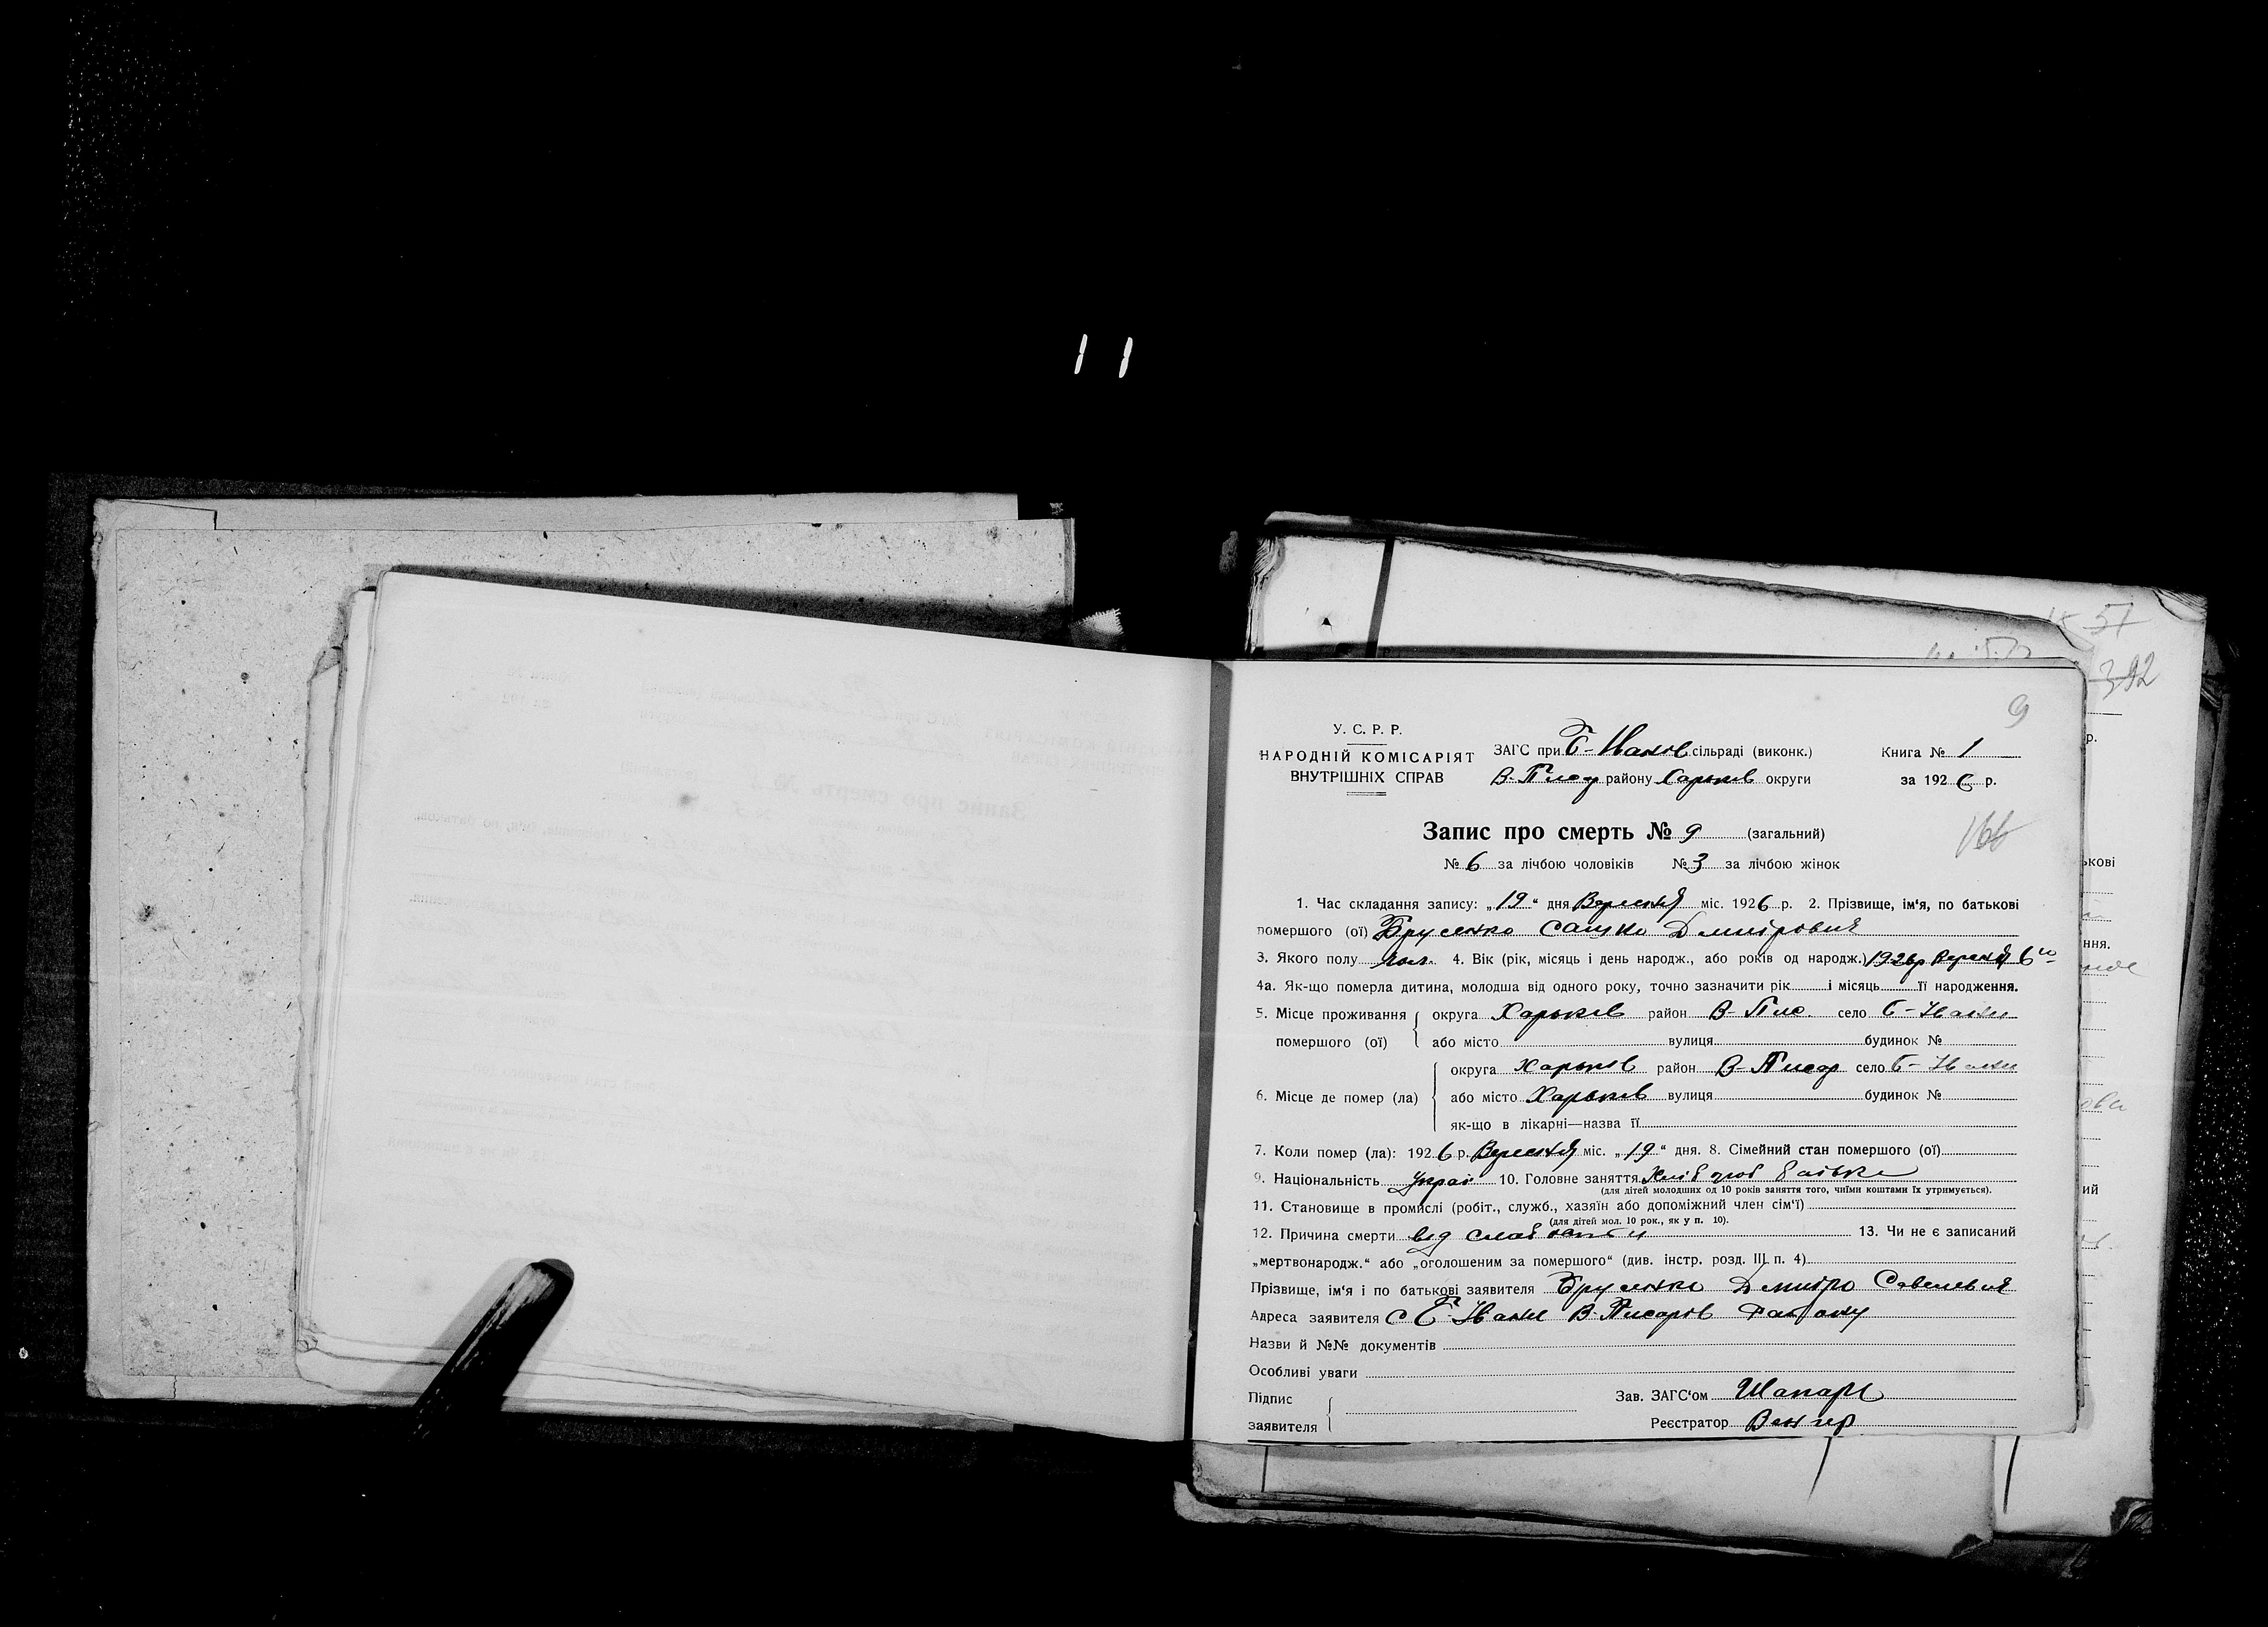 11
57
392
9
У. С. Р. Р.
НАРОДНІЙ КОМІСАРІЯТ
ВНУТРІШНІХ СПРАВ
ЗАГС при Б-Иванов сільраді (виконк.)
В-Писар району Харьків округи
Книга № 1
за 1926 р.
Запис про смерть № 9 (загальний)
№ 6 за лічбою чоловіків № 3 за лічбою жінок
166
1. Час складання запису: „19“ дня Вересня міс. 1926 р. 2. Прізвище, ім'я, по батькові
помершого (ої) Брусенко Сашко Дмитрович
3. Якого полу чол. 4. Вік (рік, місяць і день народж., або років од народж.) 1926р Вересня 6го
4а. Як-що померла дитина, молодша від одного року, точно зазначити рік і місяць її народження.
5. Місце проживання помершого (ої)
округа Харьків район В-Пис. село Б-Ивани
або місто вулиця будинок №
6. Місце де помер (ла)
округа Харьков район В-Писар село Б-Ивани
або місто Харьків вулиця будинок №
як-що в лікарні—назва її
7. Коли помер (ла): 1926 р. Вересня міс. „19“ дня. 8. Сімейний стан помершого (ої)
9. Національність Украі 10. Головне заняття Хлібороб батько
(для дітей молодших од 10 років заняття того, чиїми коштами їх утримується).
11. Становище в промислі (робіт., служб., хазяїн або допоміжний член сім'ї)
(для дітей мол. 10 рок., як у п. 10).
12. Причина смерти від слабости 13. Чи не є записаний
„мертвонародж.“ або „оголошеним за помершого“ (див. інстр. розд. III п. 4)
Прізвище, ім'я і по батькові заявителя Брусенко Дмитро Савельевич
Адреса заявителя с Б-Ивани В-Писарів району
Назви й №№ документів
Особливі уваги
Підпис заявителя
Зав. ЗАГС'ом Шапарь
Реєстратор Венгер